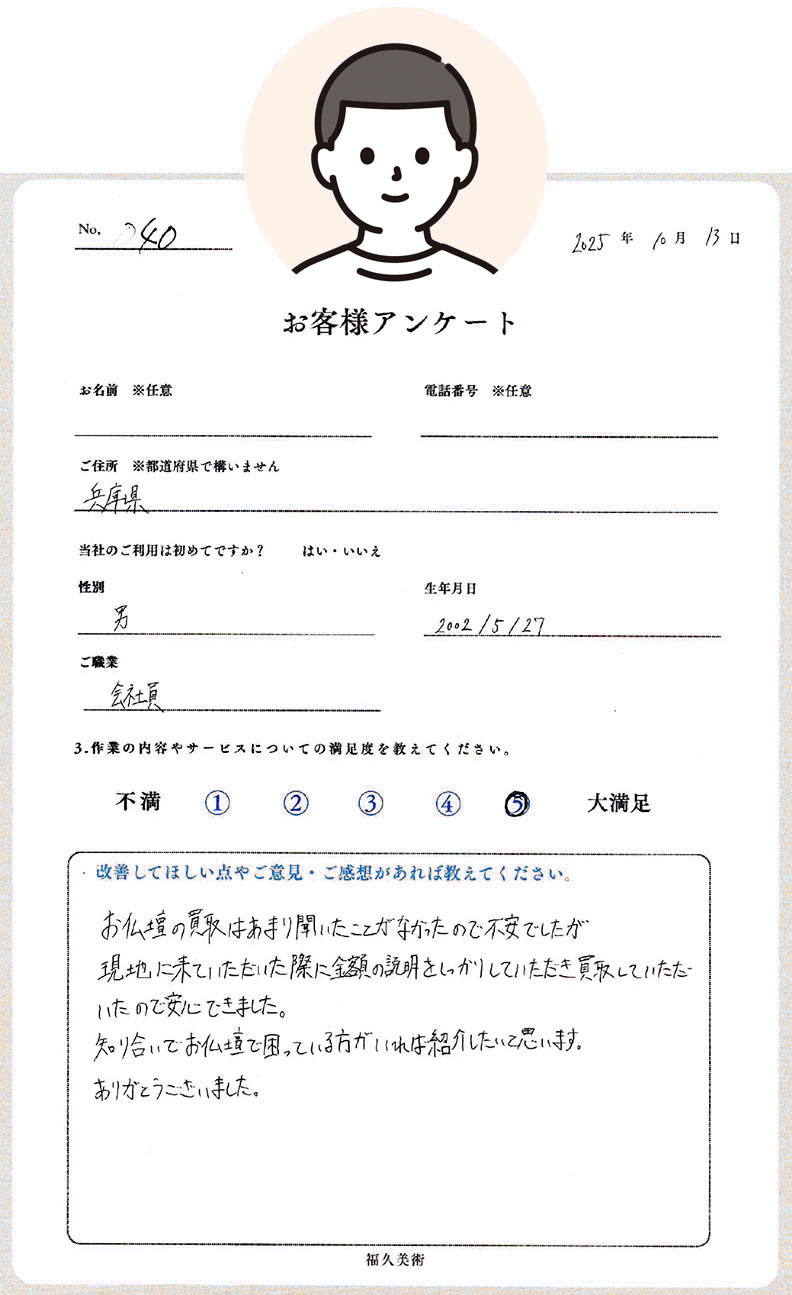 No, 040
2025 年 10 月 13 日
お客様アンケート
お名前 ※任意
電話番号 ※任意
ご住所 ※都道府県で構いません
兵庫県
当社のご利用は初めてですか？ はい・いいえ
性別
生年月日
男
2002/5/27
ご職業
会社員
3.作業の内容やサービスについての満足度を教えてください。
不満 ① ② ③ ④ ⑤ 大満足
・改善してほしい点やご意見・ご感想があれば教えてください。
お仏壇の買取はあまり聞いたことがなかったので不安でしたが
現地に来ていただいた際に金額の説明をしっかりしていただき買取していただ
いたので安心できました。
知り合いでお仏壇で困っている方がいれば紹介したいと思います。
ありがとうございました。
福久美術